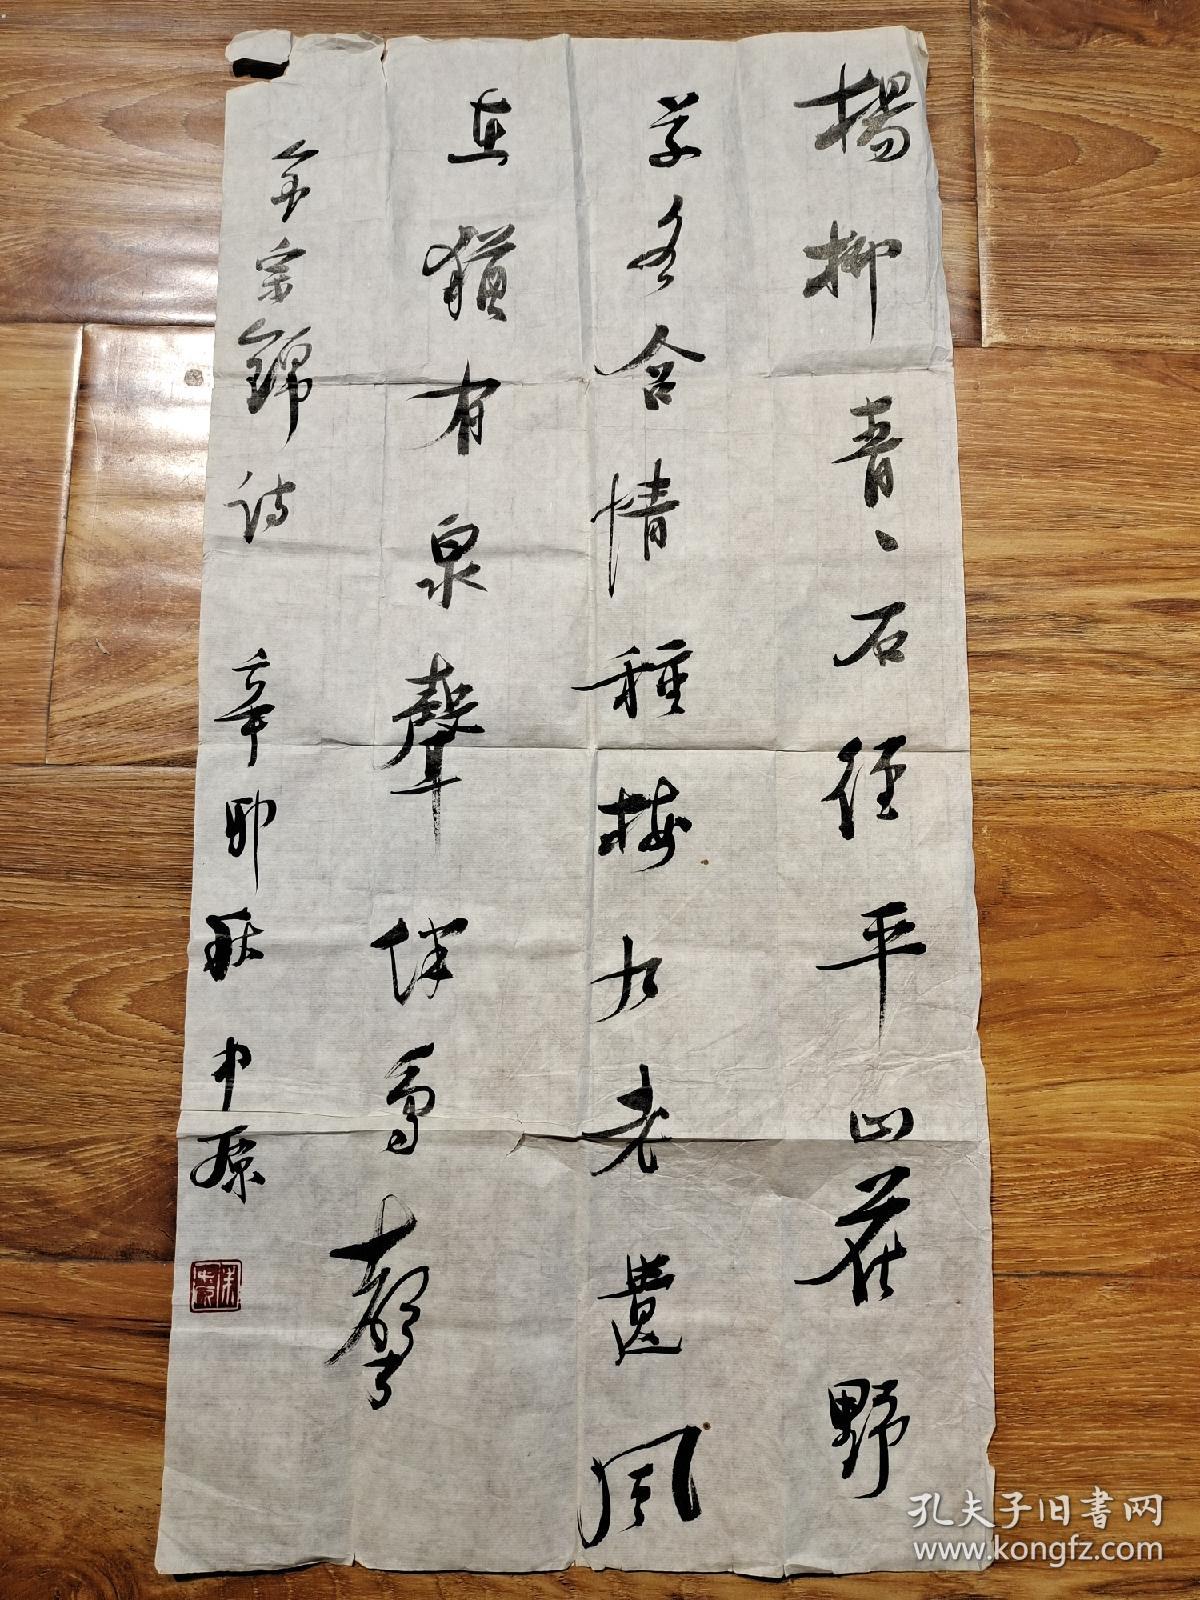 楊柳青〻石径平山花野
草各含情種梅九老遺風
在猶有泉聲伴鳥聲
金宗錦詩 辛卯秋中原
孔夫子旧书网
www.kongfz.com